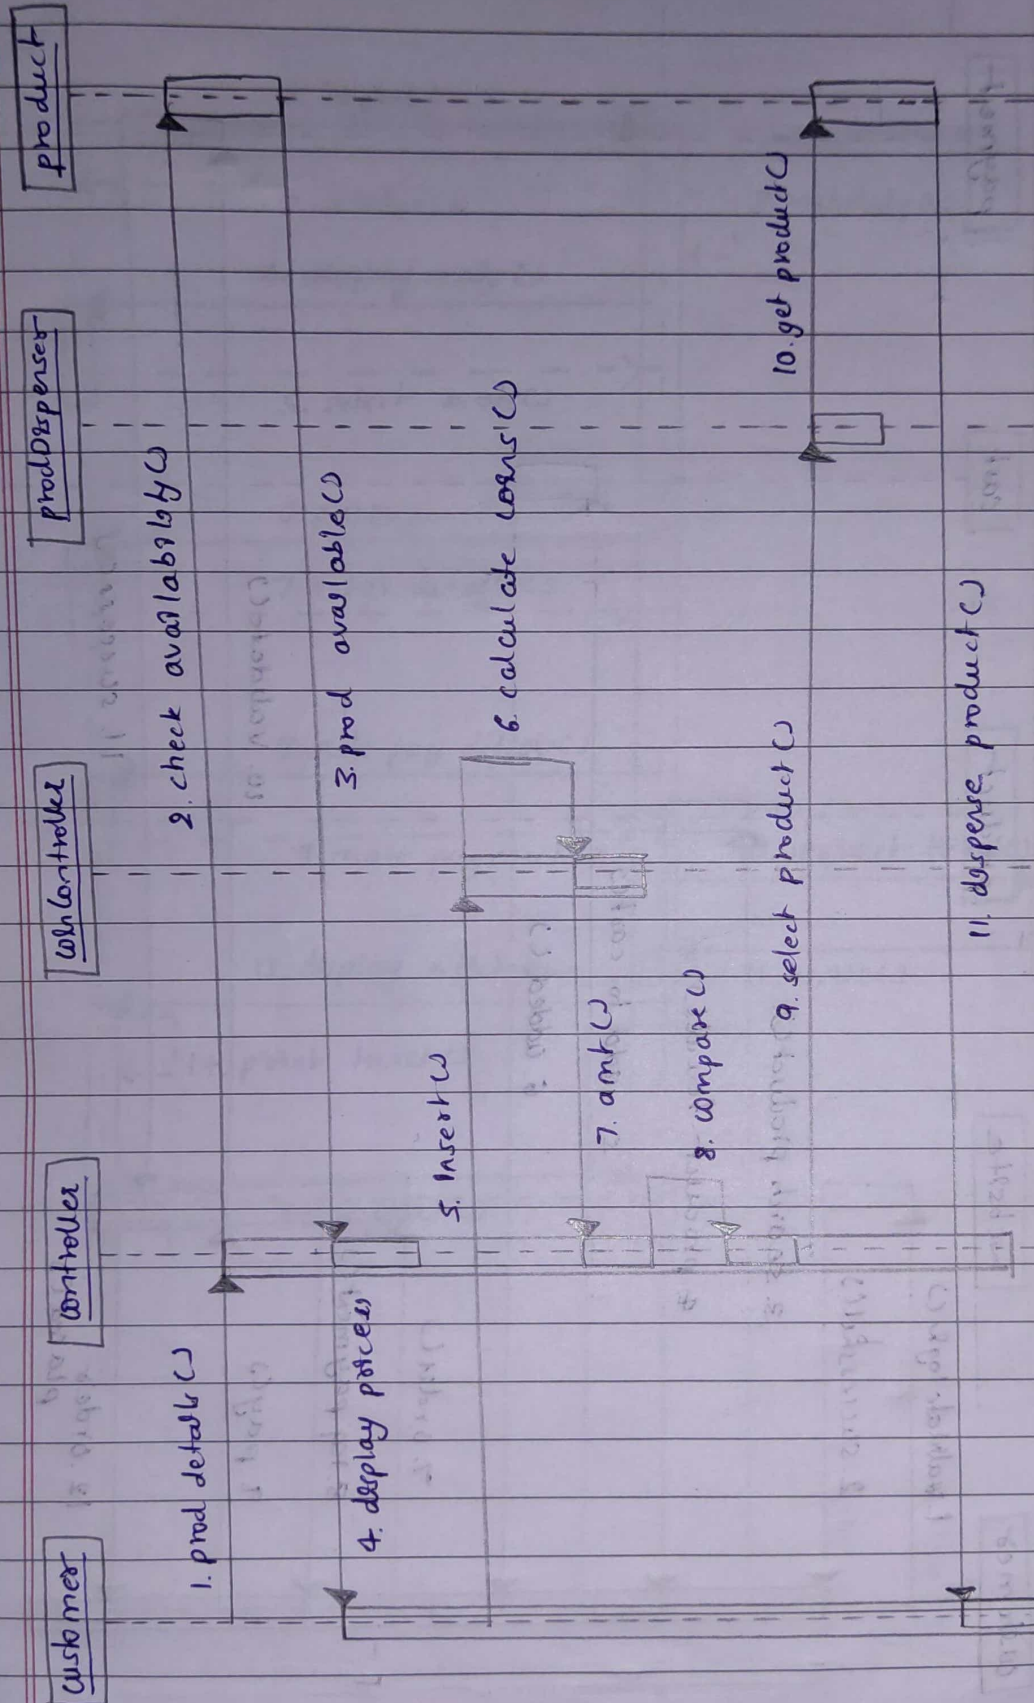 customer
controller
coinController
prodDispenser
product
1. prod details()
2. check availability()
3. prod available()
4. display prices
5. Insert()
6. calculate coins()
7. amt()
8. compare()
9. select product()
10. get product()
11. dispense product()